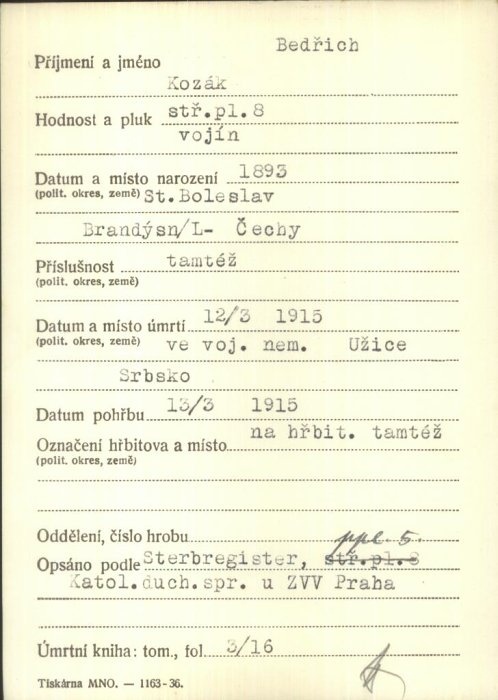 Bedřich
Příjmení a jméno
Kozák
Hodnost a pluk stř.pl.8
vojín
Datum a místo narození 1893
(polit. okres, země) St.Boleslav
Brandýsn/L- Čechy
Příslušnost tamtéž
(polit. okres, země)
Datum a místo úmrtí 12/3 1915
(polit. okres, země) ve voj. nem. Užice
Srbsko
Datum pohřbu 13/3 1915
na hřbit. tamtéž
Označení hřbitova a místo
(polit. okres, země)
Oddělení, číslo hrobu
ppl. 5.
Opsáno podle Sterbregister, stř.pl.8
Katol.duch.spr. u ZVV Praha
Úmrtní kniha: tom., fol 3/16
Tiskárna MNO. — 1163-36.